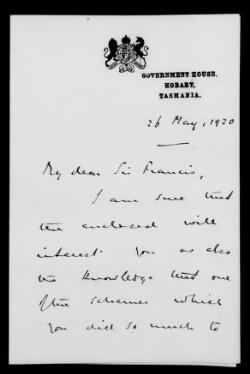 GOVERNMENT HOUSE,
HOBART,
TASMANIA.
26 May, 1920
My dear Sir Francis,
I am sure that
the enclosed will
interest you as also
the knowledge that one
of the schemes which
you did so much to